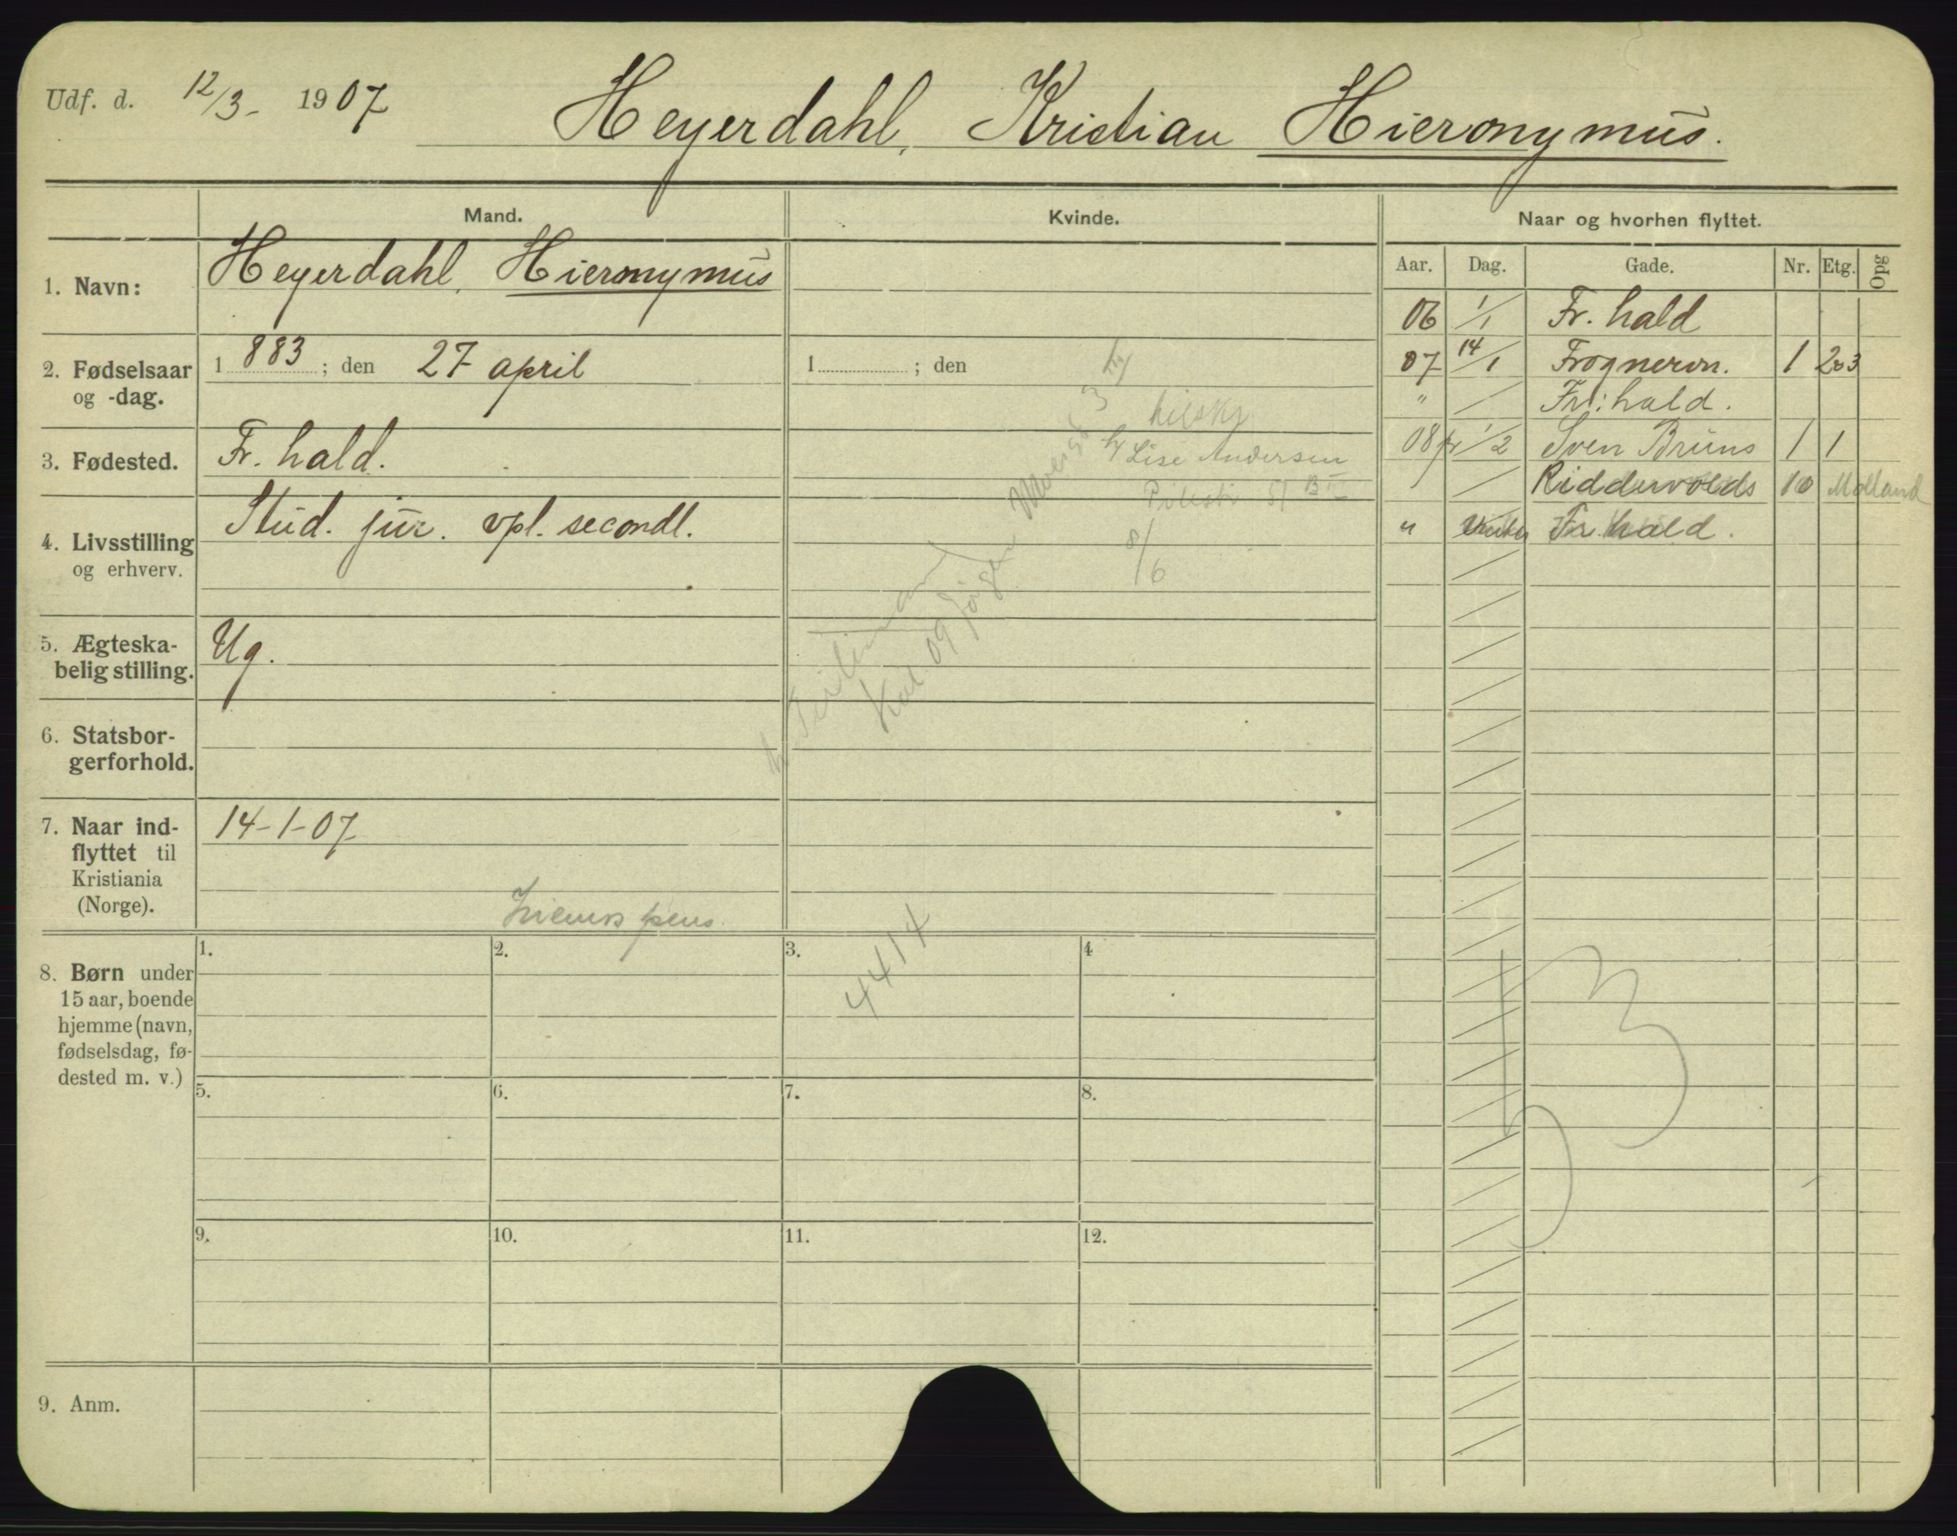 Udf. d. 12/3- 1907 Heyerdahl, Kristian Hieronymus.
Mand. Kvinde. Naar og hvorhen flyttet.
Aar. Dag. Gade. Nr. Etg. Opg
1. Navn: Heyerdahl, Hieronymus
2. Fødselsaar og -dag. 1883; den 27 april 1 ; den
3. Fødested. Fr. hald.
4. Livsstilling og erhverv. Stud. jur. vpl. secondl.
5. Ægteska-
belig stilling. Ug.
6. Statsbor-
gerforhold.
7. Naar ind-
flyttet til
Kristiania
(Norge). 14-1-07
pens.
8. Børn under
15 aar, boende
hjemme (navn,
fødselsdag, fø-
dested m. v.)
1. 2. 3. 4
5. 6. 7. 8.
9. 10. 11. 12.
9. Anm.
06 1/1 Fr. hald
07 14/1 Frognervn. 1 2 o 3
" / Fr. hald.
08 1/2 Sven Bruns 1 1
/ Riddervolds 10 Molland
" Fr. hald.
Lise Andersen
Pilestr 51 B III
8/6
4414